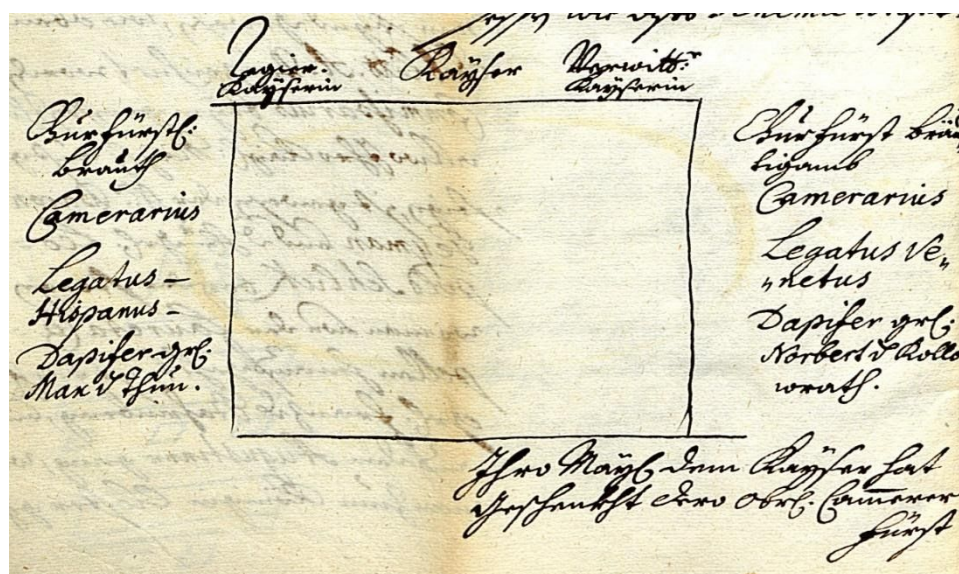 wie
Regier: Kayser Verwittr
Kayserin Kayserin
Churfürstl:
Brauth
Camerarius
Legatus –
Hispanus –
Dapifer grl:
Max v Thun.
Churfürst bräu
tigamb
Camerarius
Legatus Ve„
„netus
Dapifer grl:
Norbert v Kollo
wrath.
Ihro Mayl: dem Kayser hat
geschenkht dero Obrl: Camerer
Fürst